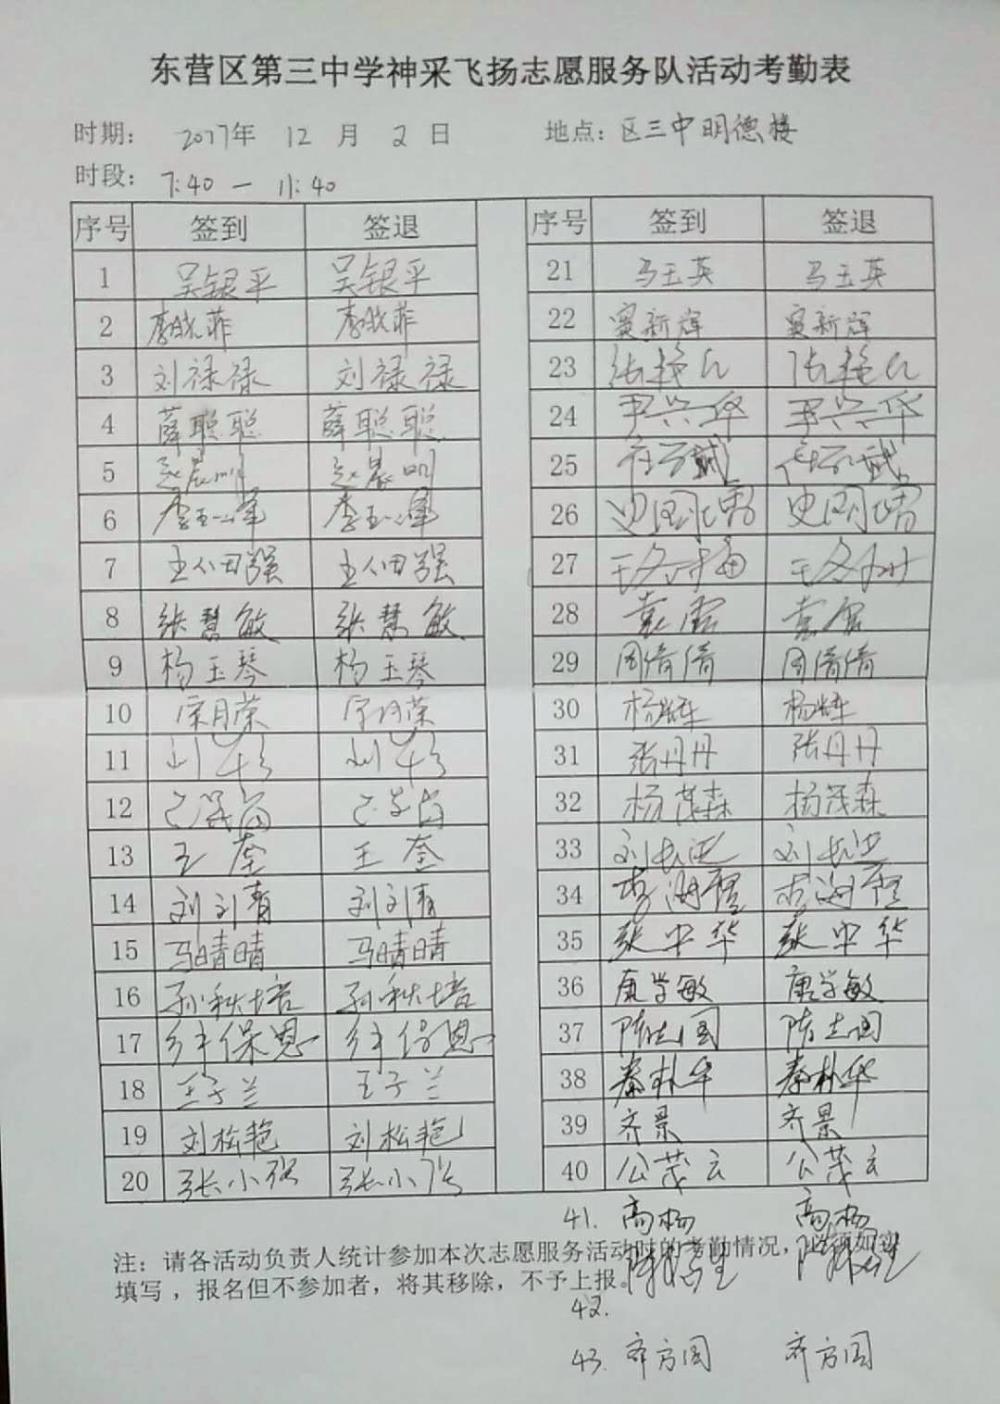 东营区第三中学神采飞扬志愿服务队活动考勤表
时期： 2017年 12 月 2 日 地点：区三中明德楼
时段：7:40 — 11:40
序号 签到 签退 序号 签到 签退
1 吴银平 吴银平 21 马玉英 马玉英
2 李晓菲 李晓菲 22 窦新辉 窦新辉
3 刘禄禄 刘禄禄 23 张艳 张艳
4 薛聪聪 薛聪聪 24 尹兴华 尹兴华
5 赵晨明 赵晨明 25
6 李玉军 李玉军 26 史国 史国
7 王伯田强 王伯田强 27 王冬梅 王冬
8 张慧敏 张慧敏 28 袁雷 袁雷
9 杨玉琴 杨玉琴 29 周倩倩 周倩倩
10 宋月荣 宋月荣 30 杨辉 杨辉
11 刘 刘 31 张丹丹 张丹丹
12 32 杨茂森 杨茂森
13 王奎 王奎 33 刘长 刘长
14 刘刘青 刘刘青 34 李海霞 李海霞
15 马晴晴 马晴晴 35 张中华 张中华
16 孙秋培 孙秋培 36 康学敏 康学敏
17 保恩 保恩 37 陈志国 陈志国
18 王子兰 王子兰 38 秦朴华 秦朴华
19 刘松艳 刘松艳 39 齐景 齐景
20 张小强 张小强 40 公茂云 公茂云
41. 高杨 高杨
注：请各活动负责人统计参加本次志愿服务活动时的考勤情况，必须如实
填写，报名但不参加者，将其移除，不予上报。
42.
43. 齐方圆 齐方圆